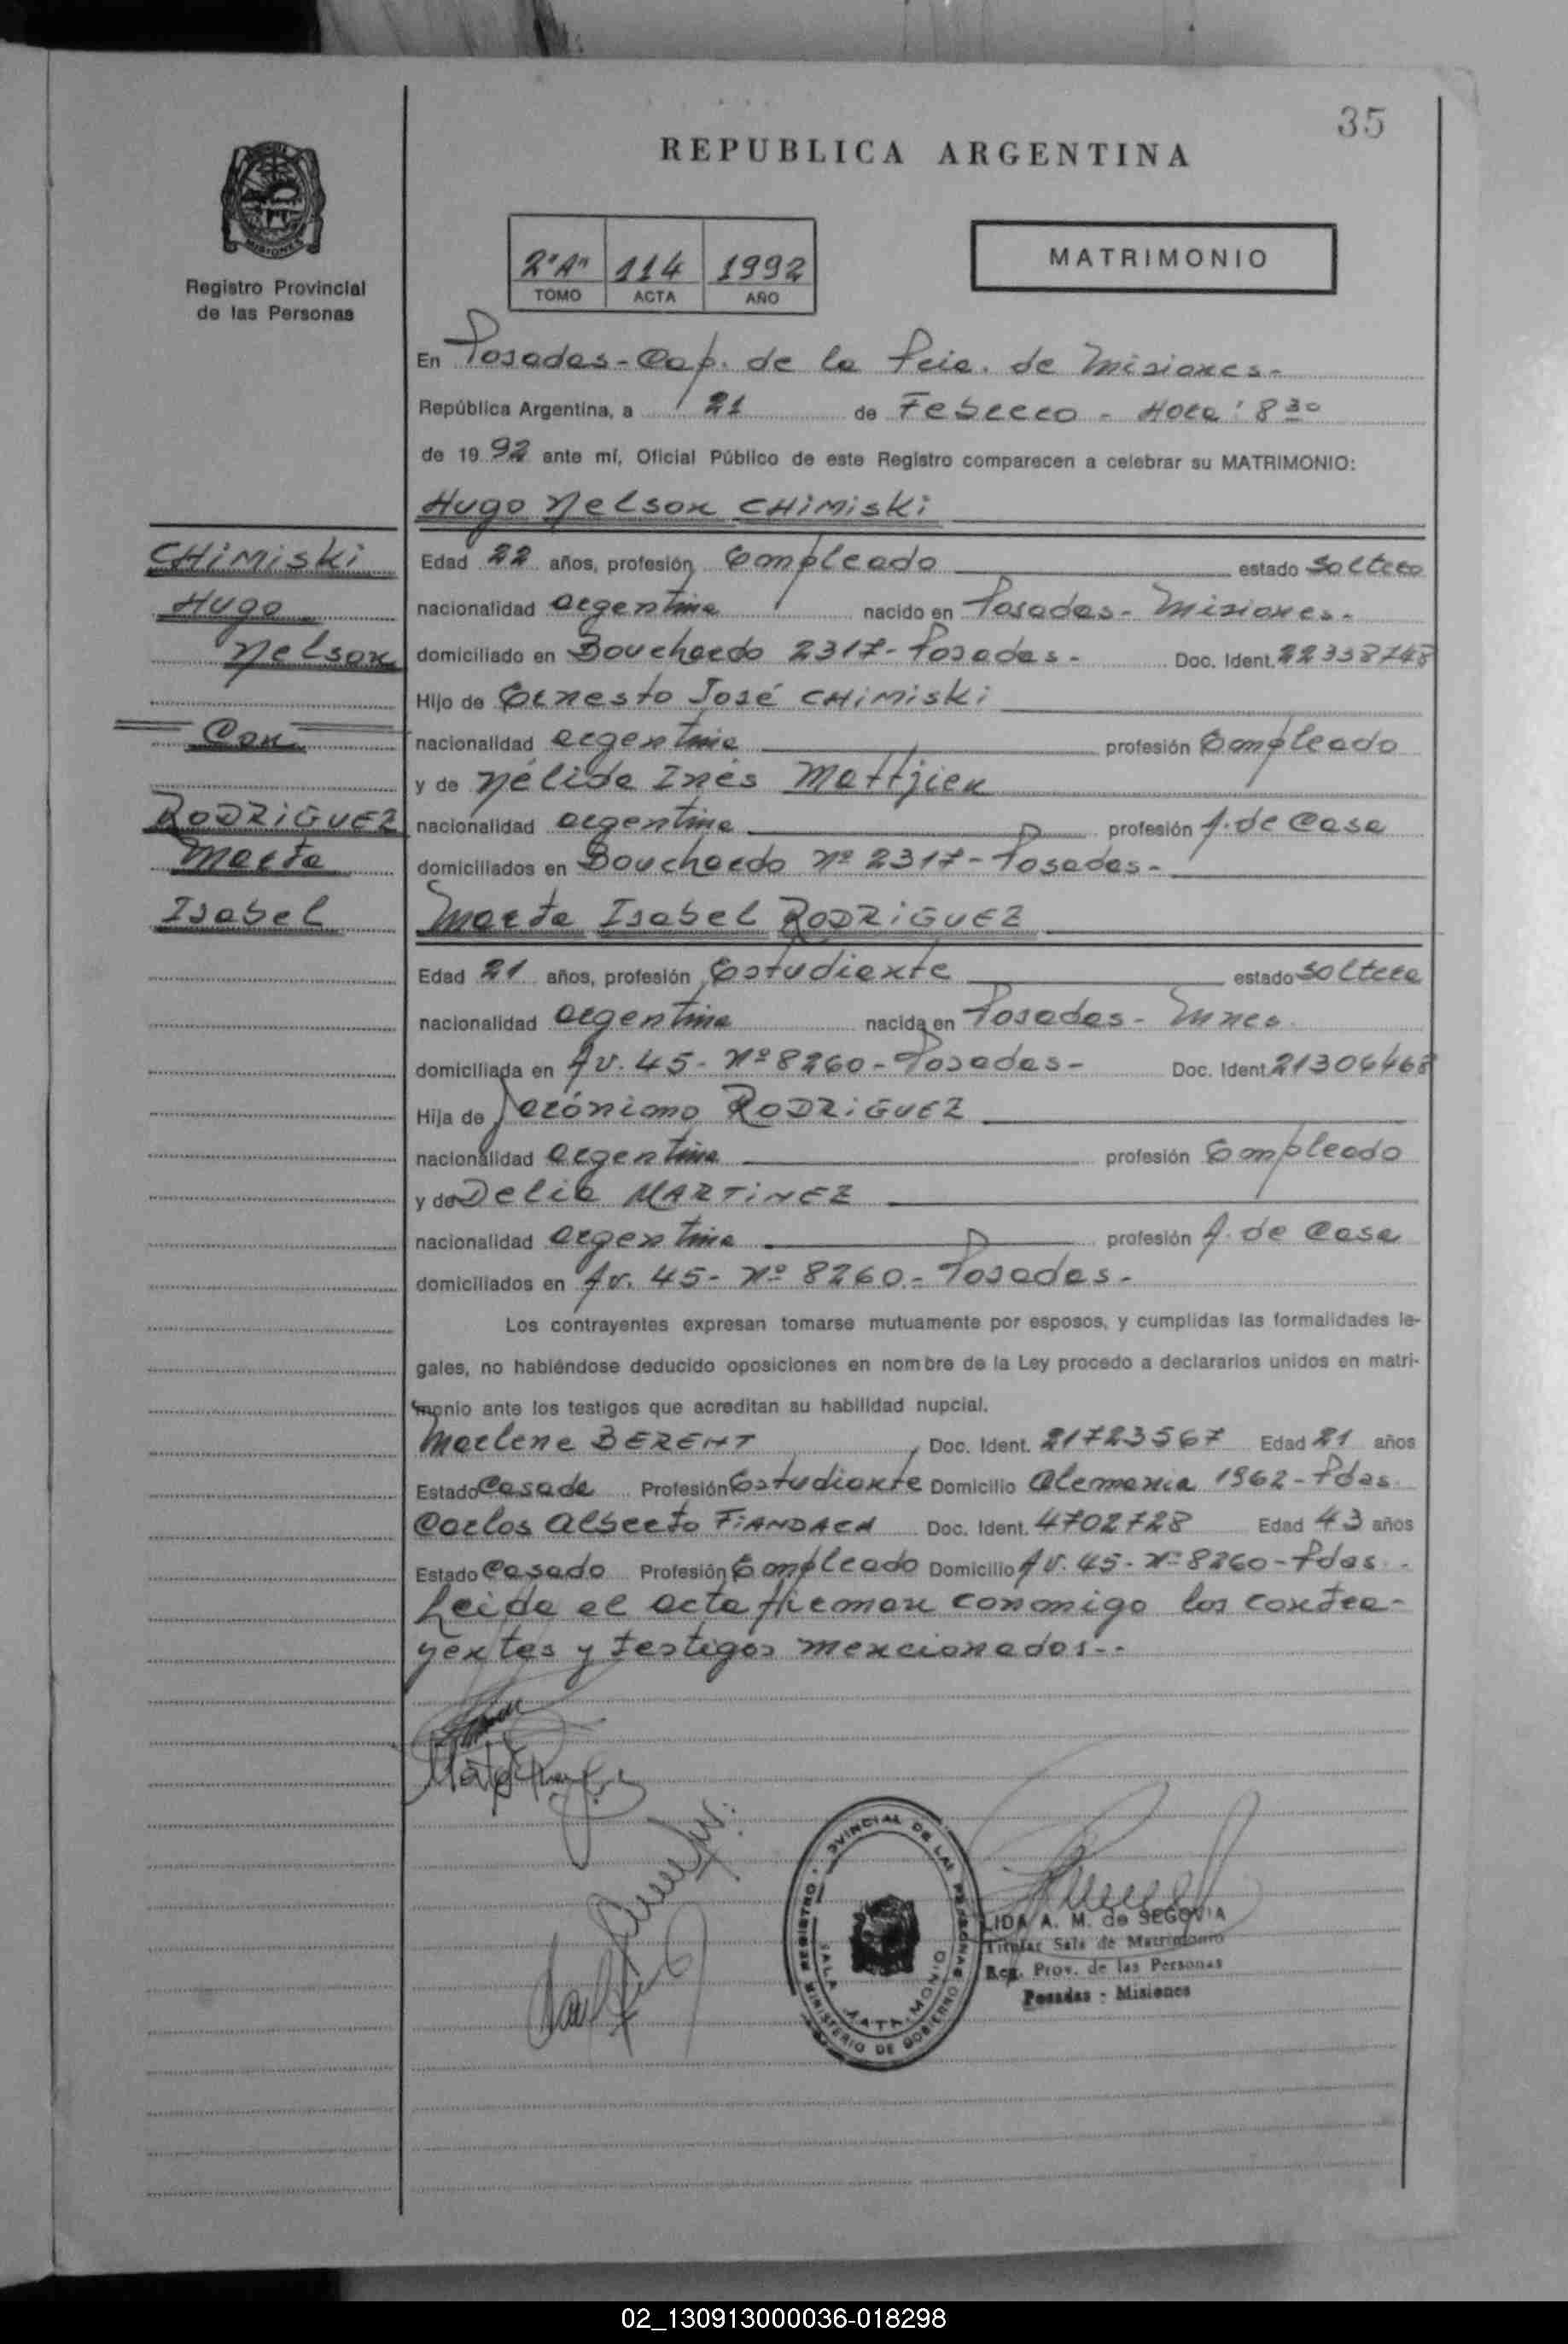 35
REPUBLICA ARGENTINA
MISIONES
Registro Provincial
de las Personas
2º"A" 114 1992
TOMO ACTA AÑO
MATRIMONIO
En Posadas - Cap. de la Pcia. de Misiones-
República Argentina, a 21 de Febrero - Hora: 8 30
de 1992 ante mí, Oficial Público de este Registro comparecen a celebrar su MATRIMONIO:
Hugo Nelson CHIMISKI
CHIMISKI
Hugo
Nelson
Con
RODRIGUEZ
Marta
Isabel
Edad 22 años, profesión Empleado estado Soltero
nacionalidad argentina nacido en Posadas - Misiones-
domiciliado en Bouchardo 2317 - Posadas - Doc. Ident. 22338748
Hijo de Ernesto José CHIMISKI
nacionalidad argentina profesión Empleado
y de Nélida Inés
nacionalidad argentina profesión A. de Casa
domiciliados en Bouchardo Nº 2317 - Posadas-
Marta Isabel RODRIGUEZ
Edad 21 años, profesión Estudiante estado Soltera
nacionalidad argentina nacida en Posadas - Mnes.
domiciliada en Av. 45 - Nº 8260 - Posadas - Doc. Ident. 21306468
Hija de Jerónimo RODRIGUEZ
nacionalidad argentina profesión Empleado
y de Delia MARTINEZ
nacionalidad argentina profesión A. de Casa
domiciliados en Av. 45 - Nº 8260 - Posadas-
Los contrayentes expresan tomarse mutuamente por esposos, y cumplidas las formalidades le-
gales, no habiéndose deducido oposiciones en nombre de la Ley procedo a declararlos unidos en matri-
monio ante los testigos que acreditan su habilidad nupcial.
Marlene BERENT Doc. Ident. 21723567 Edad 21 años
Estado Casada Profesión Estudiante Domicilio Alemania 1962 - Pdas.
Carlos Alberto FIANDACA Doc. Ident. 4702728 Edad 43 años
Estado Casado Profesión Empleado Domicilio Av. 45 - Nº 8260 - Pdas.
Leida el acta firman conmigo los contra-
yentes y testigos mencionados--
REGISTRO PROVINCIAL DE LAS PERSONAS
SALA MATRIMONIO
MINISTERIO DE GOBIERNO
LIDA A. M. de SEGOVIA
Titular Sala de Matrimonio
Reg. Prov. de las Personas
Posadas - Misiones
02_130913000036-018298